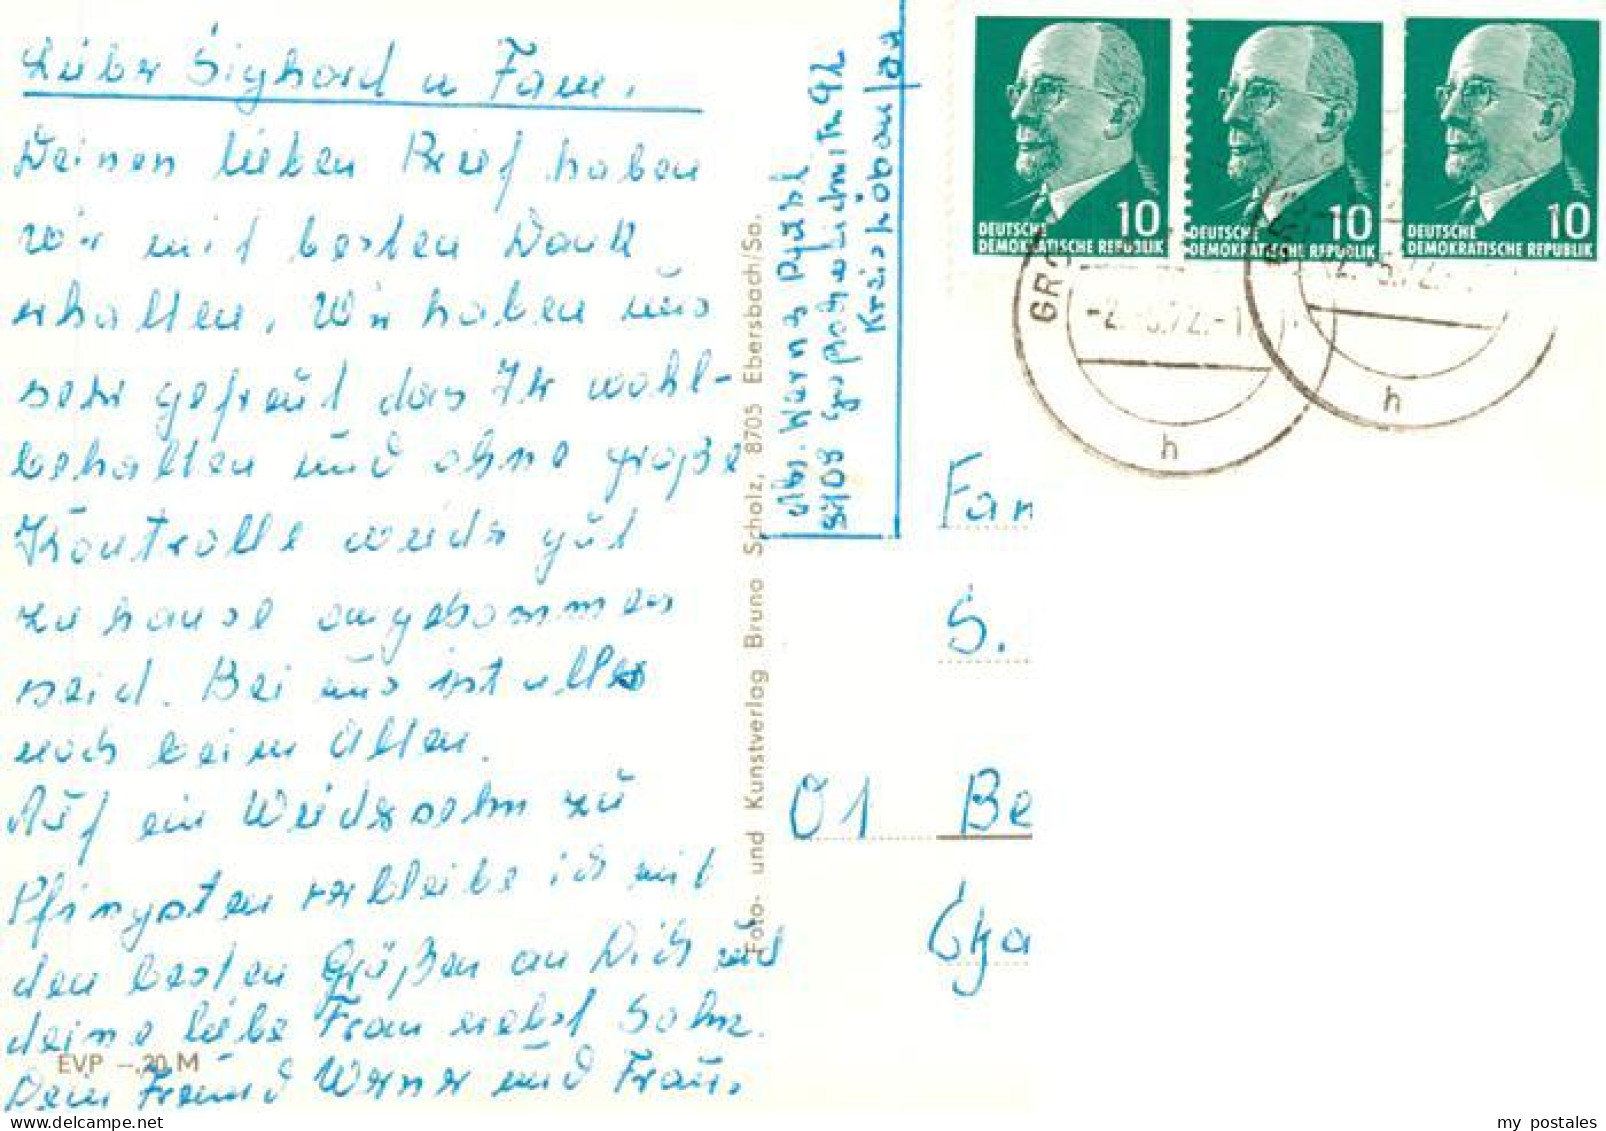 Lieber Sighard u Fam.
Deinen lieben Brief haben
wir mit besten Dank
erhalten. Wir haben uns
sehr gefreut das Ihr wohl-
behalten und ohne große
Kontrolle wieder gut
zu hause angekommen
seid. Bei uns ist alles
noch beim Alten.
Auf ein Wiedersehn zu
Pfingsten verbleibe ich mit
den besten Grüßen an Dich und
deine liebe Frau nebst Sohn.
Dein Freund Werner und Frau.
EVP -,20 M
Foto- und Kunstverlag Bruno Scholz, 8705 Ebersbach/Sa.
Abs. Werner
8708
Fam
S.
01 Be
DEUTSCHE
DEMOKRATISCHE REPUBLIK
10
DEUTSCHE
DEMOKRATISCHE REPUBLIK
10
DEUTSCHE
DEMOKRATISCHE REPUBLIK
10
h
h
my postales